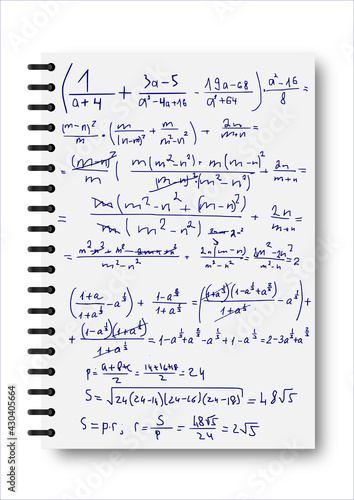 (1/(a+4) + (3a-5)/(a²-4a+16) - (19a-68)/(a³+64)) · (a²-16)/8 =
(m-n)²/m · (m/(m-n)² + m/(m²-n²)) + 2n/(m+n) =
= (m-n)²/m (m(m²-n²)+m(m-n)²/(m-n)²(m²-n²)) + 2n/(m+n) =
= m(m²-n²+(m-n)²)/m(m²-n²) + 2n/(m+n) =
= /(m²-n²) + 2n(m-n)/(m²-n²) = (2m²-2n²)/(m²-n²) = 2
((1+a)/(1+a^⅓) - a^⅓) + (1-a^⅔)/(1+a^⅓) = ((1+a^⅓)(1-a^⅓+a^⅔)/(1+a^⅓) - a^⅓) +
+ (1-a^⅓)(1+a^⅓)/(1+a^⅓) = 1-a^⅓+a^⅔-a^⅓+1-a^⅓ = 2-3a^⅓+a^⅔
p = (a+b+c)/2 = (14+16+18)/2 = 24
S = √(24(24-14)(24-16)(24-18)) = 48√5
S = p·r; r = S/p = 48√5/24 = 2√5
Adobe Stock | #430405664